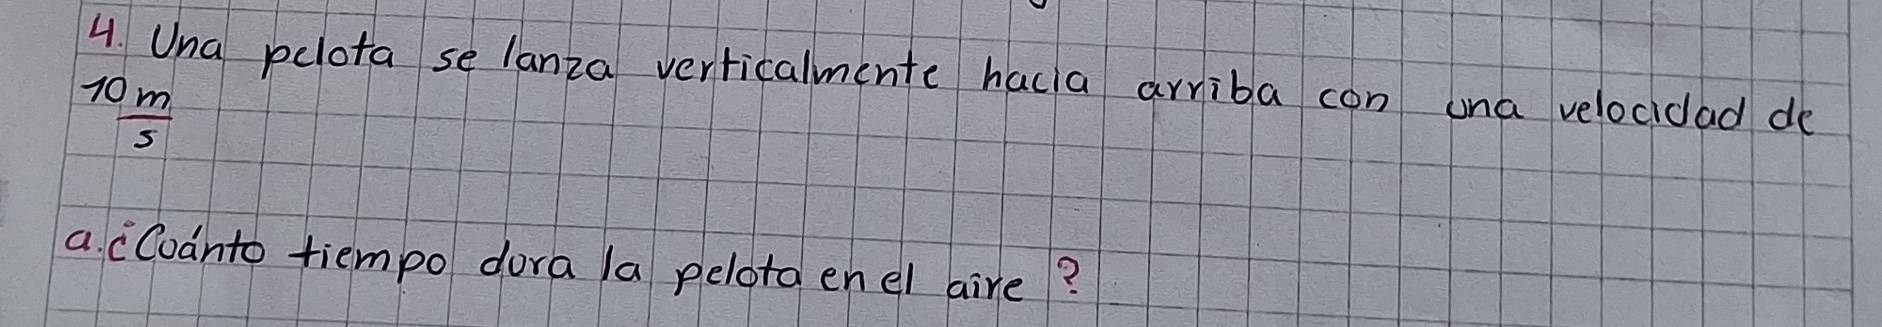 4. Una pelota se lanza verticalmente hacia arriba con una velocidad de
10 m
s
a. ¿Cuánto tiempo dura la pelota en el aire?